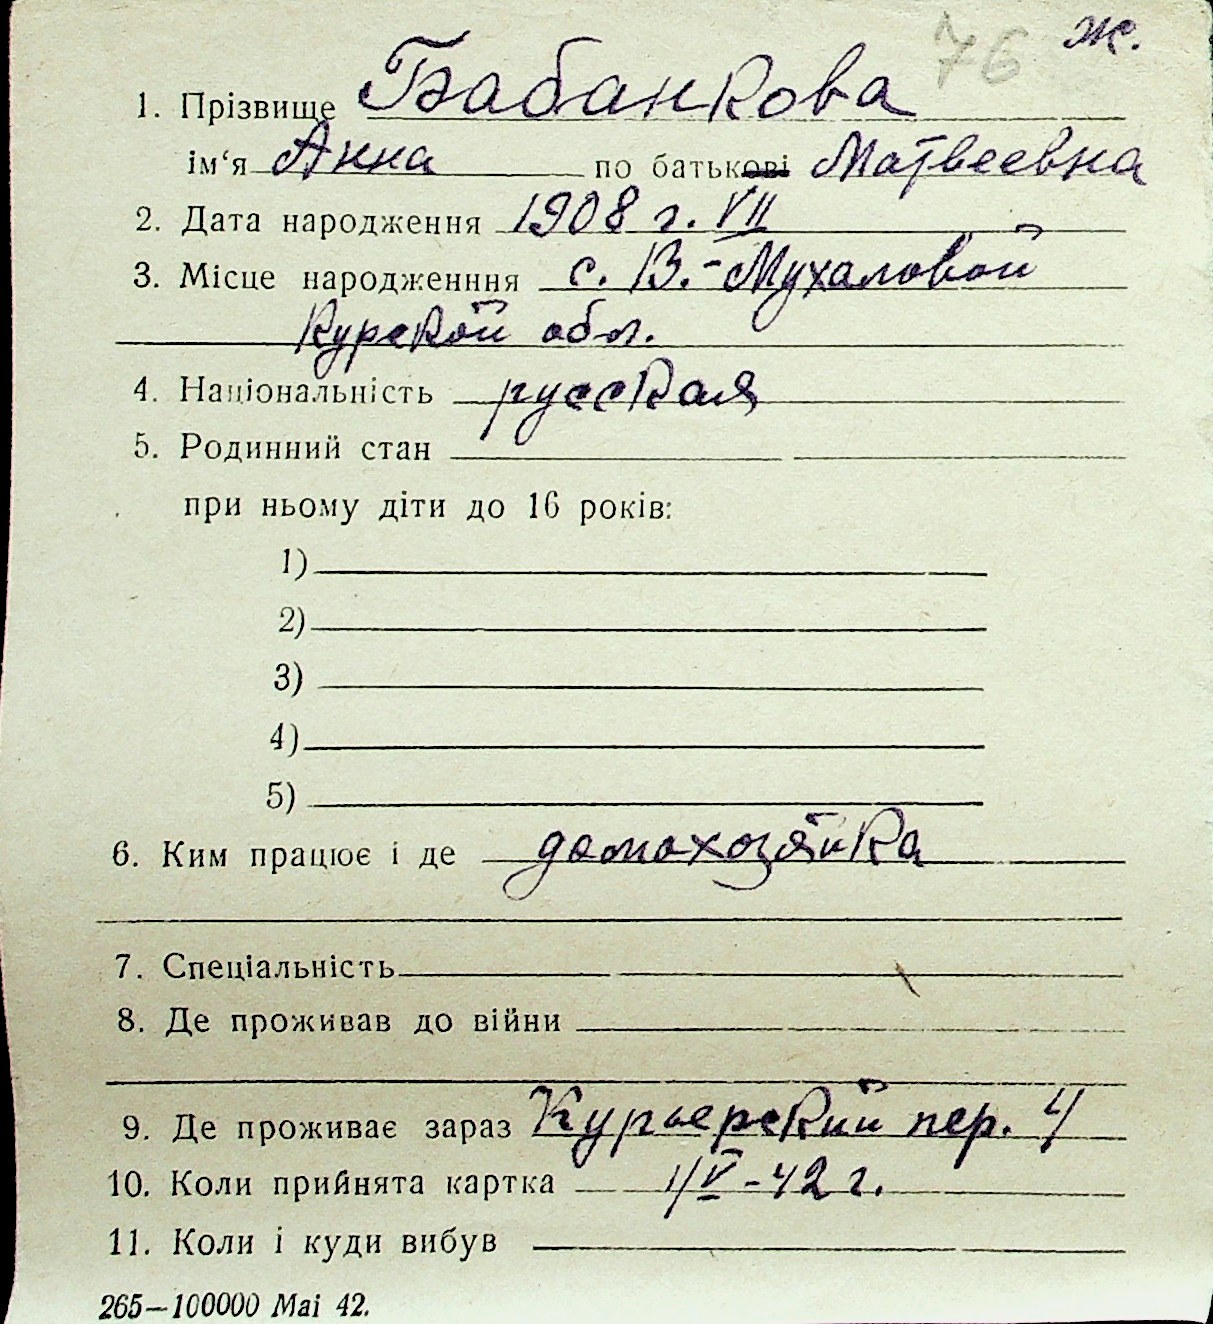 76 ж.
1. Прізвище Бабанкова
ім‘я Анна по батькові Матвеевна
2. Дата народження 1908 г. VII
3. Місце народженння с. В.-Мухаловой
Курской обл.
4. Національність русская
5. Родинний стан
при ньому діти до 16 років:
1)
2)
3)
4)
5)
6. Ким працює і де домохозяйка
7. Спеціальність
8. Де проживав до війни
9. Де проживає зараз Курьерский пер. 4
10. Коли прийнята картка 1/V-42 г.
11. Коли і куди вибув
265—100000 Маі 42.